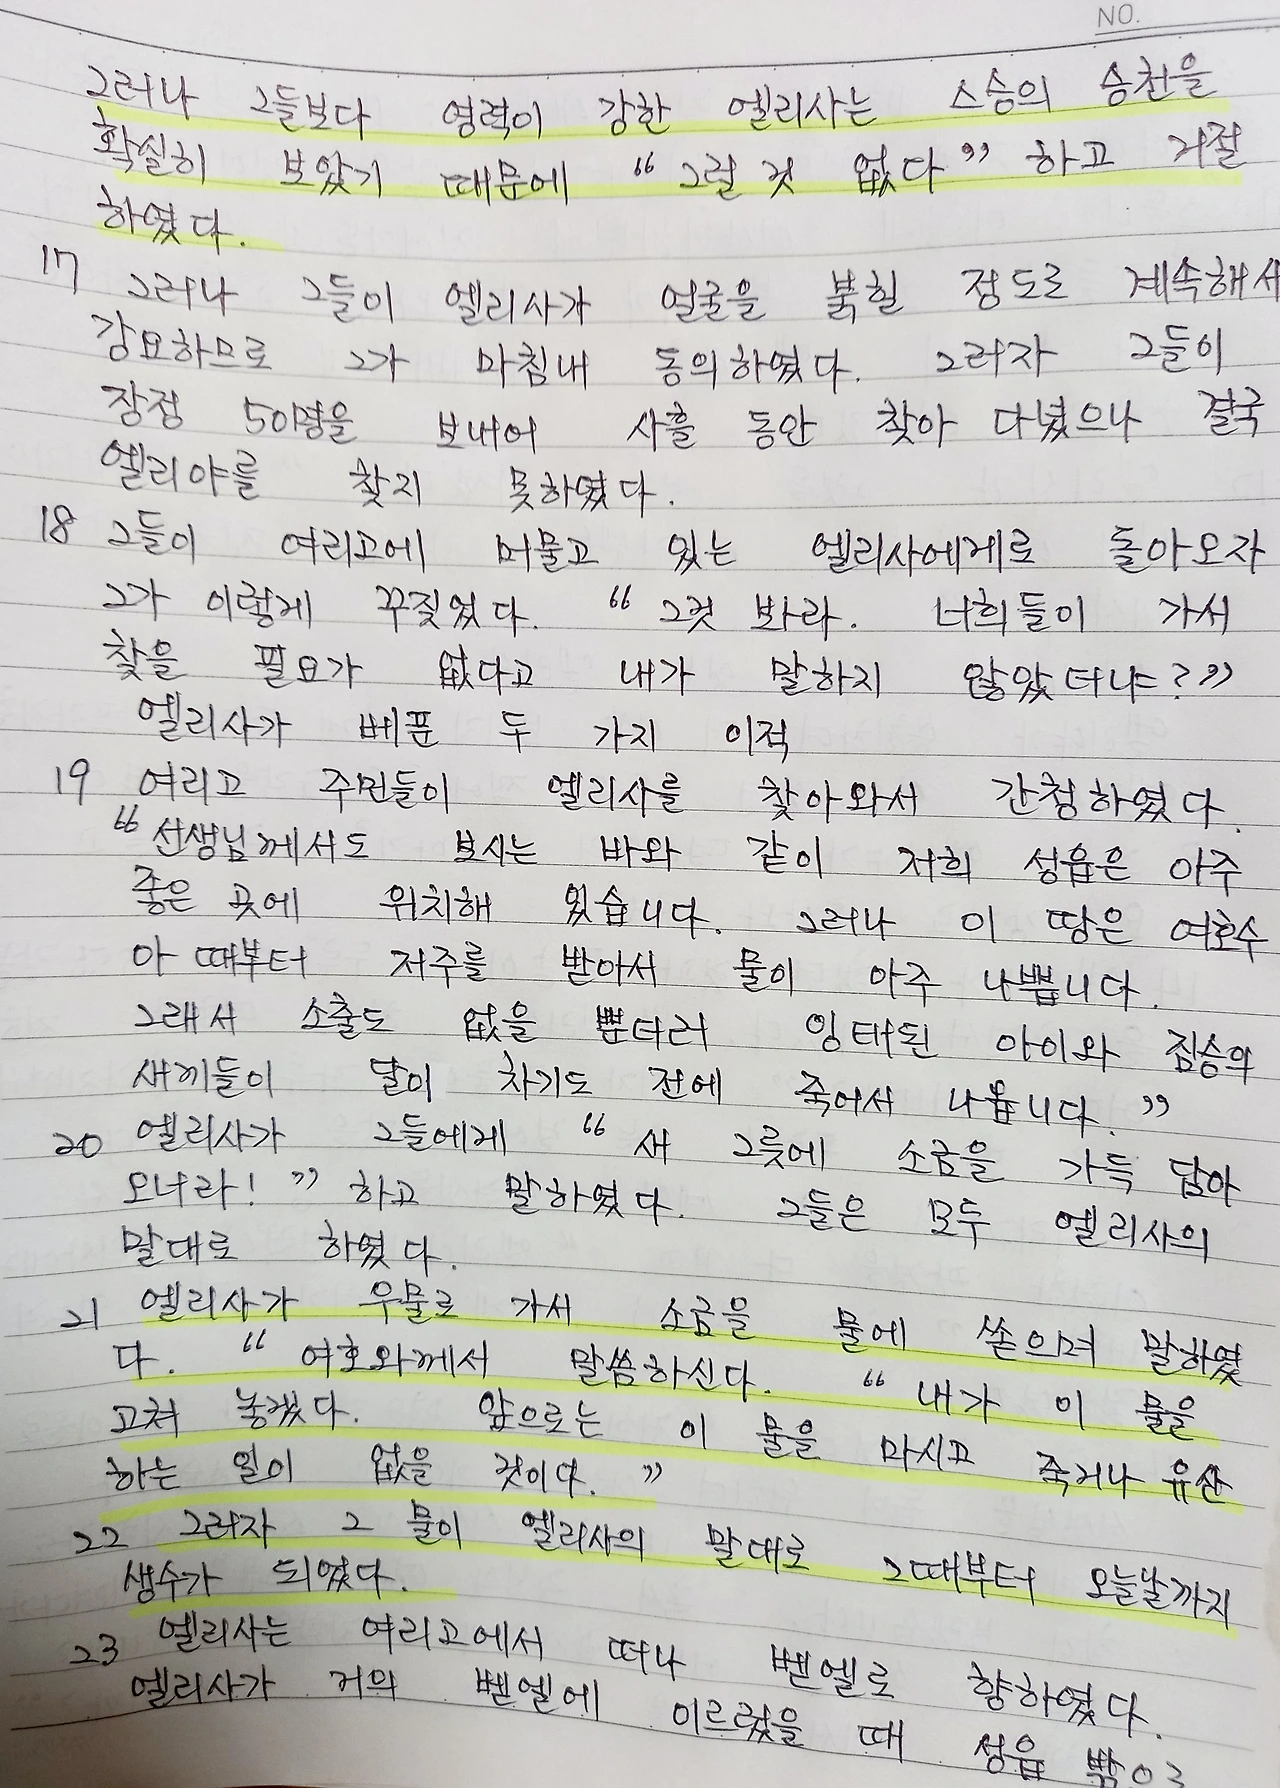 NO.
그러나 그들보다 영력이 강한 엘리사는 스승의 승천을
확실히 보았기 때문에 “그럴 것 없다” 하고 거절
하였다.
17 그러나 그들이 엘리사가 얼굴을 붉힐 정도로 계속해서
강요하므로 그가 마침내 동의하였다. 그러자 그들이
장정 50명을 보내어 사흘 동안 찾아 다녔으나 결국
엘리야를 찾지 못하였다.
18 그들이 여리고에 머물고 있는 엘리사에게로 돌아오자
그가 이렇게 꾸짖었다. “그것 봐라. 너희들이 가서
찾을 필요가 없다고 내가 말하지 않았더냐?”
엘리사가 베푼 두 가지 이적
19 여리고 주민들이 엘리사를 찾아와서 간청하였다.
“선생님께서도 보시는 바와 같이 저희 성읍은 아주
좋은 곳에 위치해 있습니다. 그러나 이 땅은 여호수
아 때부터 저주를 받아서 물이 아주 나쁩니다.
그래서 소출도 없을 뿐더러 잉태된 아이와 짐승의
새끼들이 달이 차기도 전에 죽어서 나옵니다.”
20 엘리사가 그들에게 “새 그릇에 소금을 가득 담아
오너라!” 하고 말하였다. 그들은 모두 엘리사의
말대로 하였다.
21 엘리사가 우물로 가서 소금을 물에 쏟으며 말하였
다. “여호와께서 말씀하신다. “내가 이 물을
고쳐 놓겠다. 앞으로는 이 물을 마시고 죽거나 유산
하는 일이 없을 것이다.”
22 그러자 그 물이 엘리사의 말대로 그때부터 오늘날까지
생수가 되었다.
23 엘리사는 여리고에서 떠나 벧엘로 향하였다.
엘리사가 거의 벧엘에 이르렀을 때 성읍